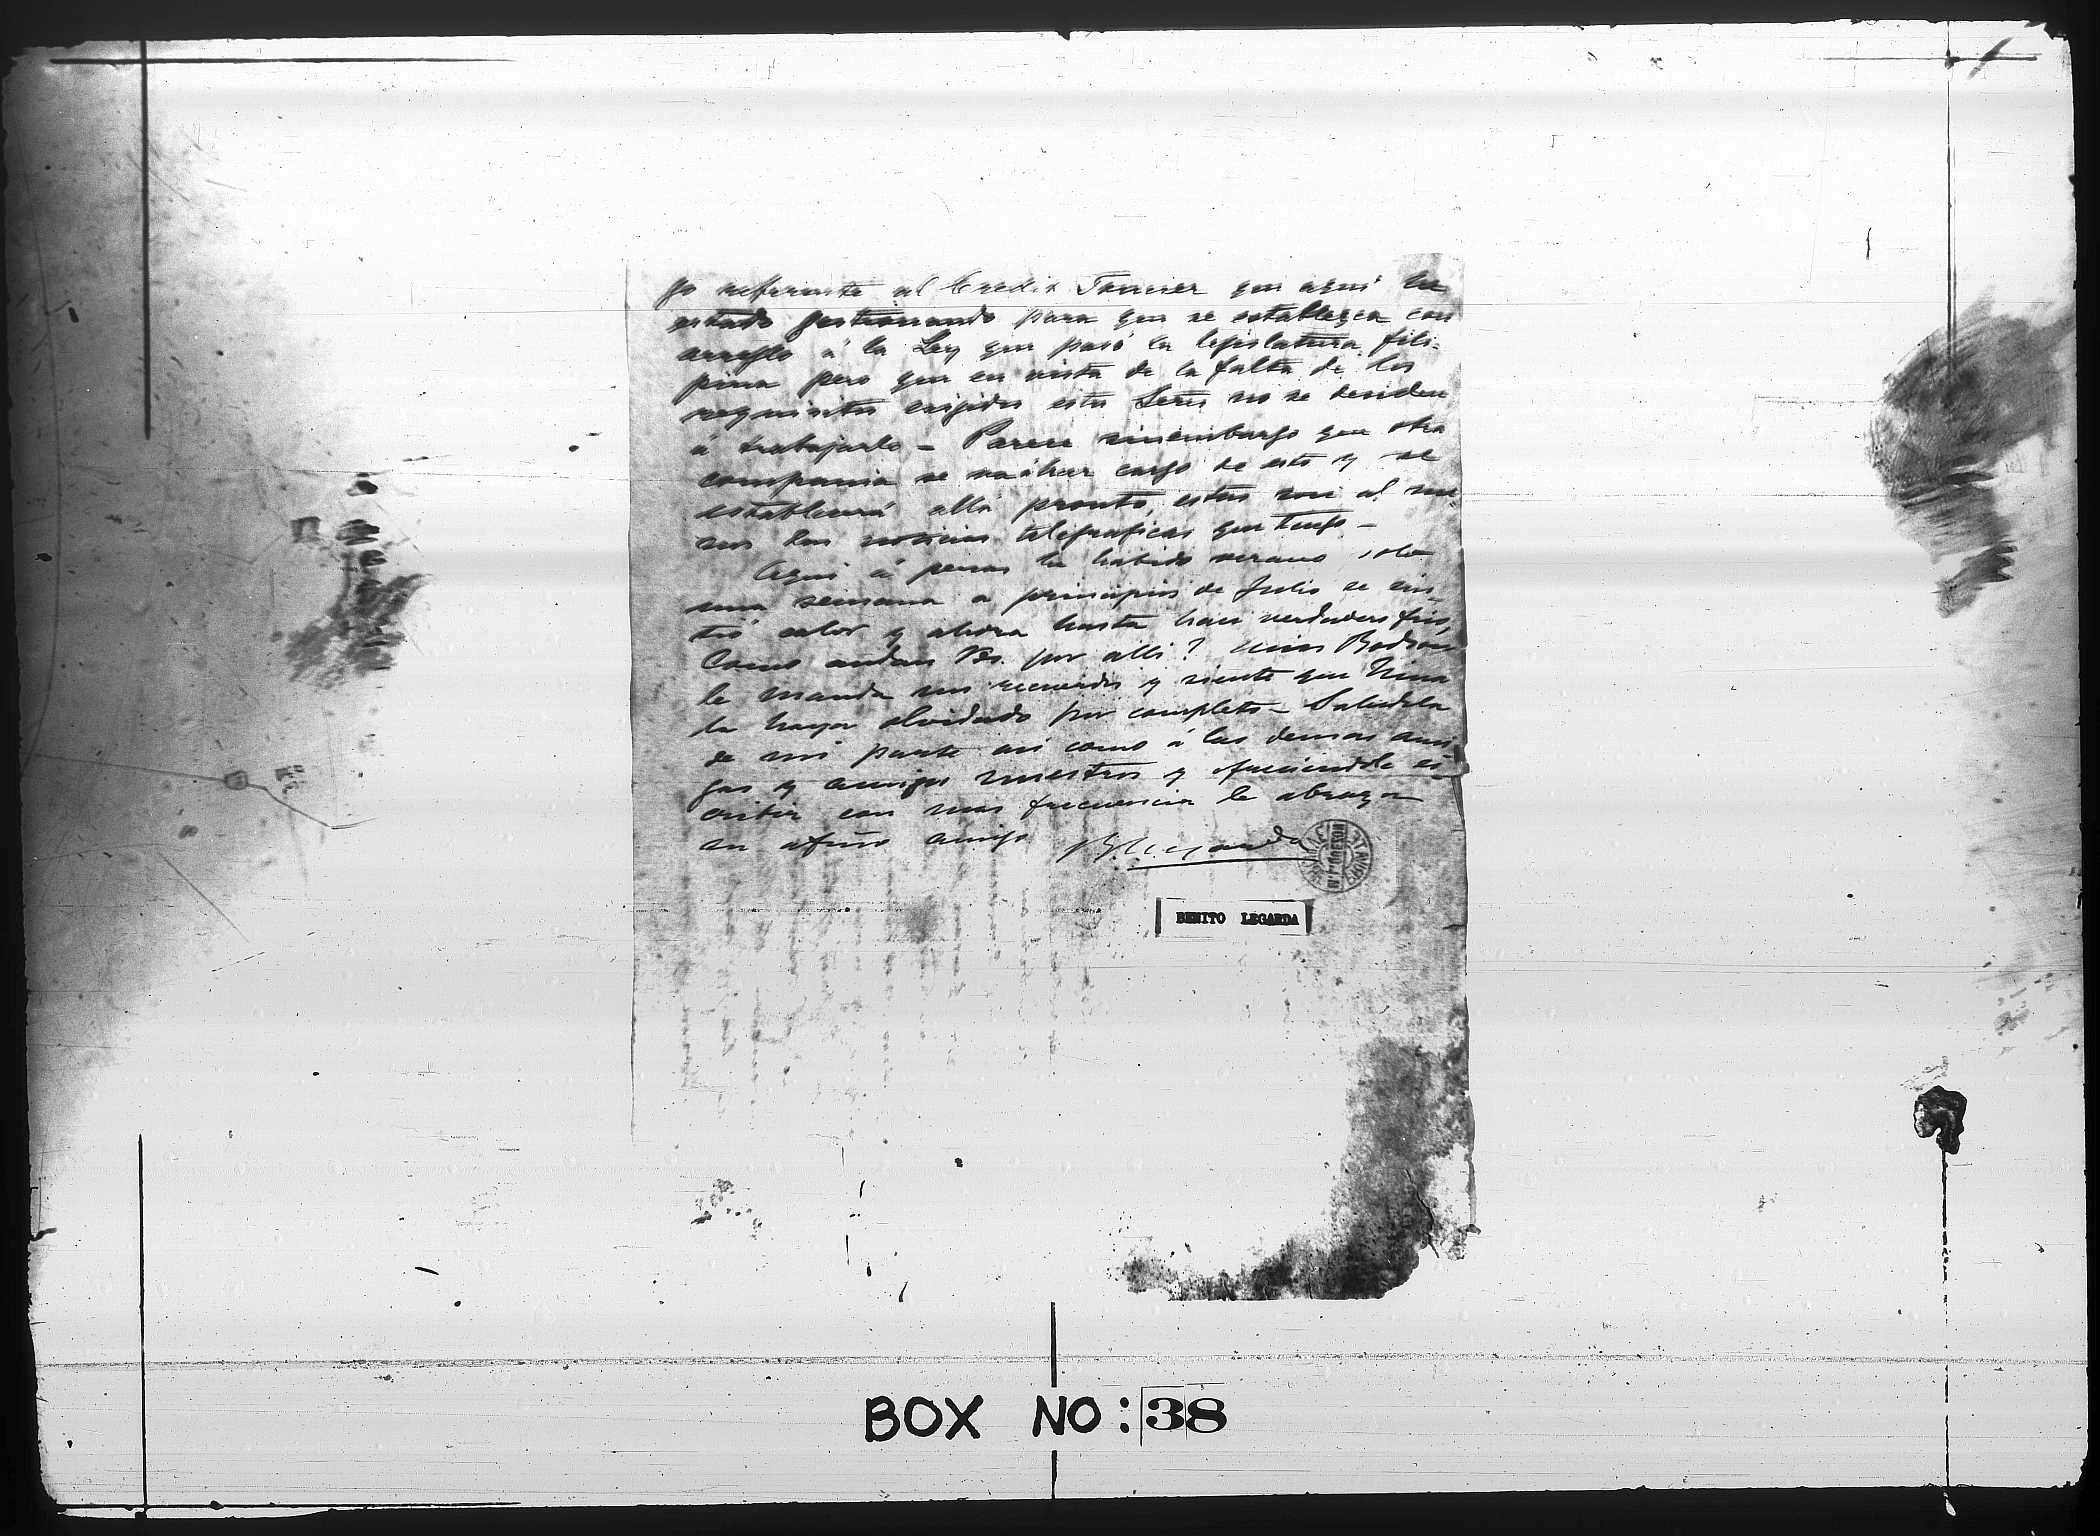 go referente al Credit Foncier que aqui he
estado gestionando para que se establezca con
arreglo á la Ley que pasó la legislatura fili-
pina pero que en vista de la falta de los
requisitos exigidos estos Sres no se desiden
á trabajarlo - Parece sinembargo que otra
compania se va á hacer cargo de esto y se
establecerá allá pronto, estas son al me-
nos las noticias telegraficas que tengo -
Aqui á penas ha habido verano, solo
una semana a principios de Julio se sin-
tió calor y ahora hasta hace verdadero frio,
Como andan Vs. por alli? Miss
le manda sus recuerdos y siente que Nina
la haya olvidado por completo - Saludela
de mi parte asi como á las demas ami-
gas y amigos nuestros y ofreciendole es-
cribir con mas frecuencia le abraza
su afmo amigo B Legarda
BENITO LEGARDA
BOX NO: 38